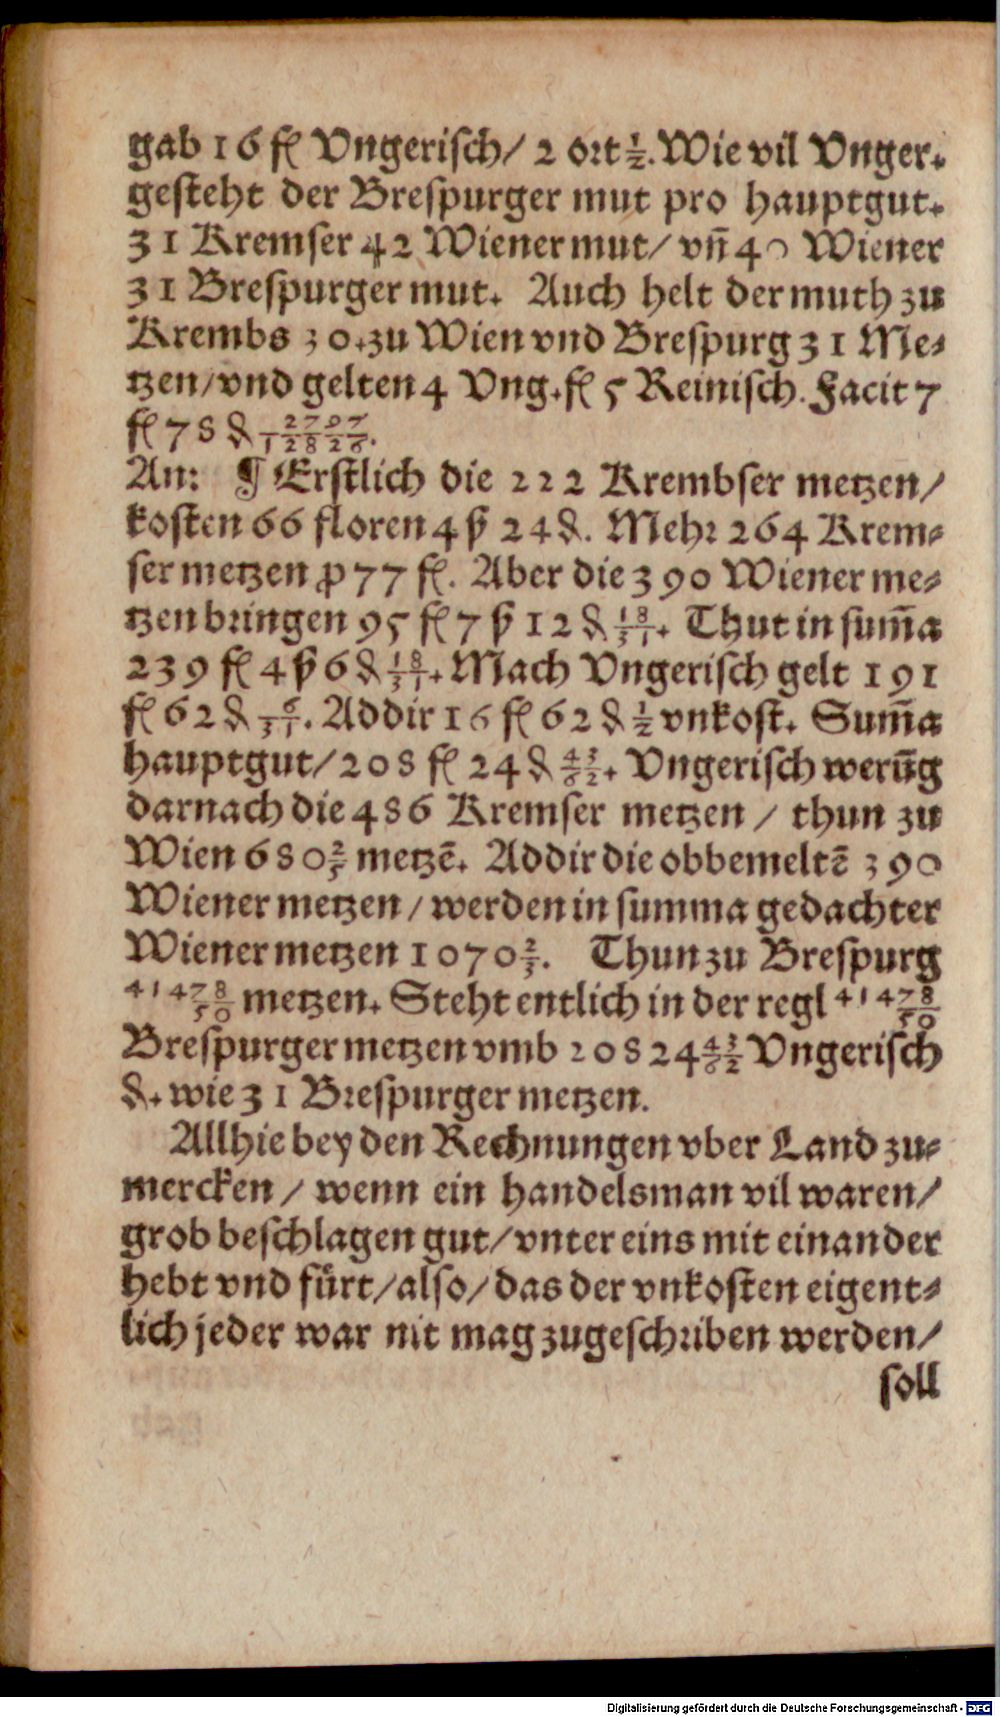 gab 16 fl Vngerisch/ 2 ort ½. Wie vil Vnger.
gesteht der Brespurger mut pro hauptgut.
31 Kremser 42 Wiener mut/ vñ 40 Wiener
31 Brespurger mut. Auch helt der muth zu
Krembs 30. zu Wien vnd Brespurg 31 Me-
tzen/ vnd gelten 4 Vng. fl 5 Reinisch. Facit 7
fl 78 ₰
An: ¶ Erstlich die 222 Krembser metzen/
kosten 66 floren 4 ß 24 ₰. Mehr 264 Krem-
ser metzen ꝓ 77 fl. Aber die 390 Wiener me-
tzen bringen 95 fl 7 ß 12 ₰ 18/31. Thut in sum̃a
239 fl 4 ß 6 ₰ 18/31. Mach Vngerisch gelt 191
fl 62 ₰ 6/31. Addir 16 fl 62 ₰ ½ vnkost. Sum̃a
hauptgut/ 208 fl 24 ₰ 43/62. Vngerisch werũg
darnach die 486 Kremser metzen / thun zu
Wien 680 2/5 metzẽ. Addir die obbemeltẽ 390
Wiener metzen / werden in summa gedachter
Wiener metzen 1070 2/5. Thun zu Brespurg
41478/50 metzen. Steht entlich in der regl 41478/50
Brespurger metzen vmb 20824 43/62 Vngerisch
₰. wie 31 Brespurger metzen.
Allhie bey den Rechnungen vber Land zu-
mercken / wenn ein handelsman vil waren/
grob beschlagen gut/ vnter eins mit einander
hebt vnd fürt/ also/ das der vnkosten eigent-
lich jeder war nit mag zugeschriben werden/
soll
Digitalisierung gefördert durch die Deutsche Forschungsgemeinschaft - DFG